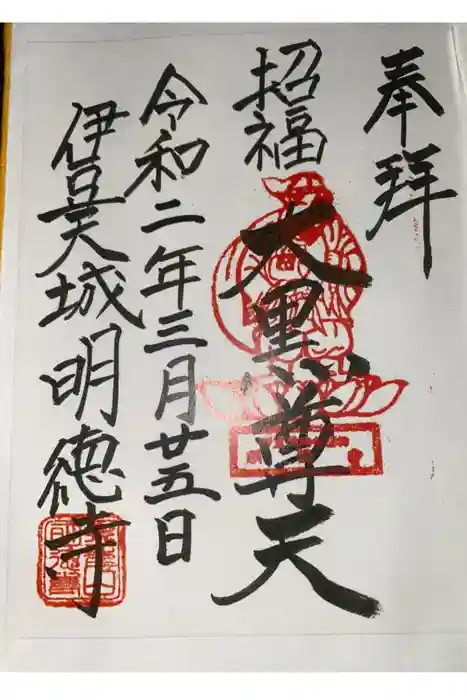 奉拝
招福
大黒尊天
令和二年三月廿五日
伊豆天城明徳寺